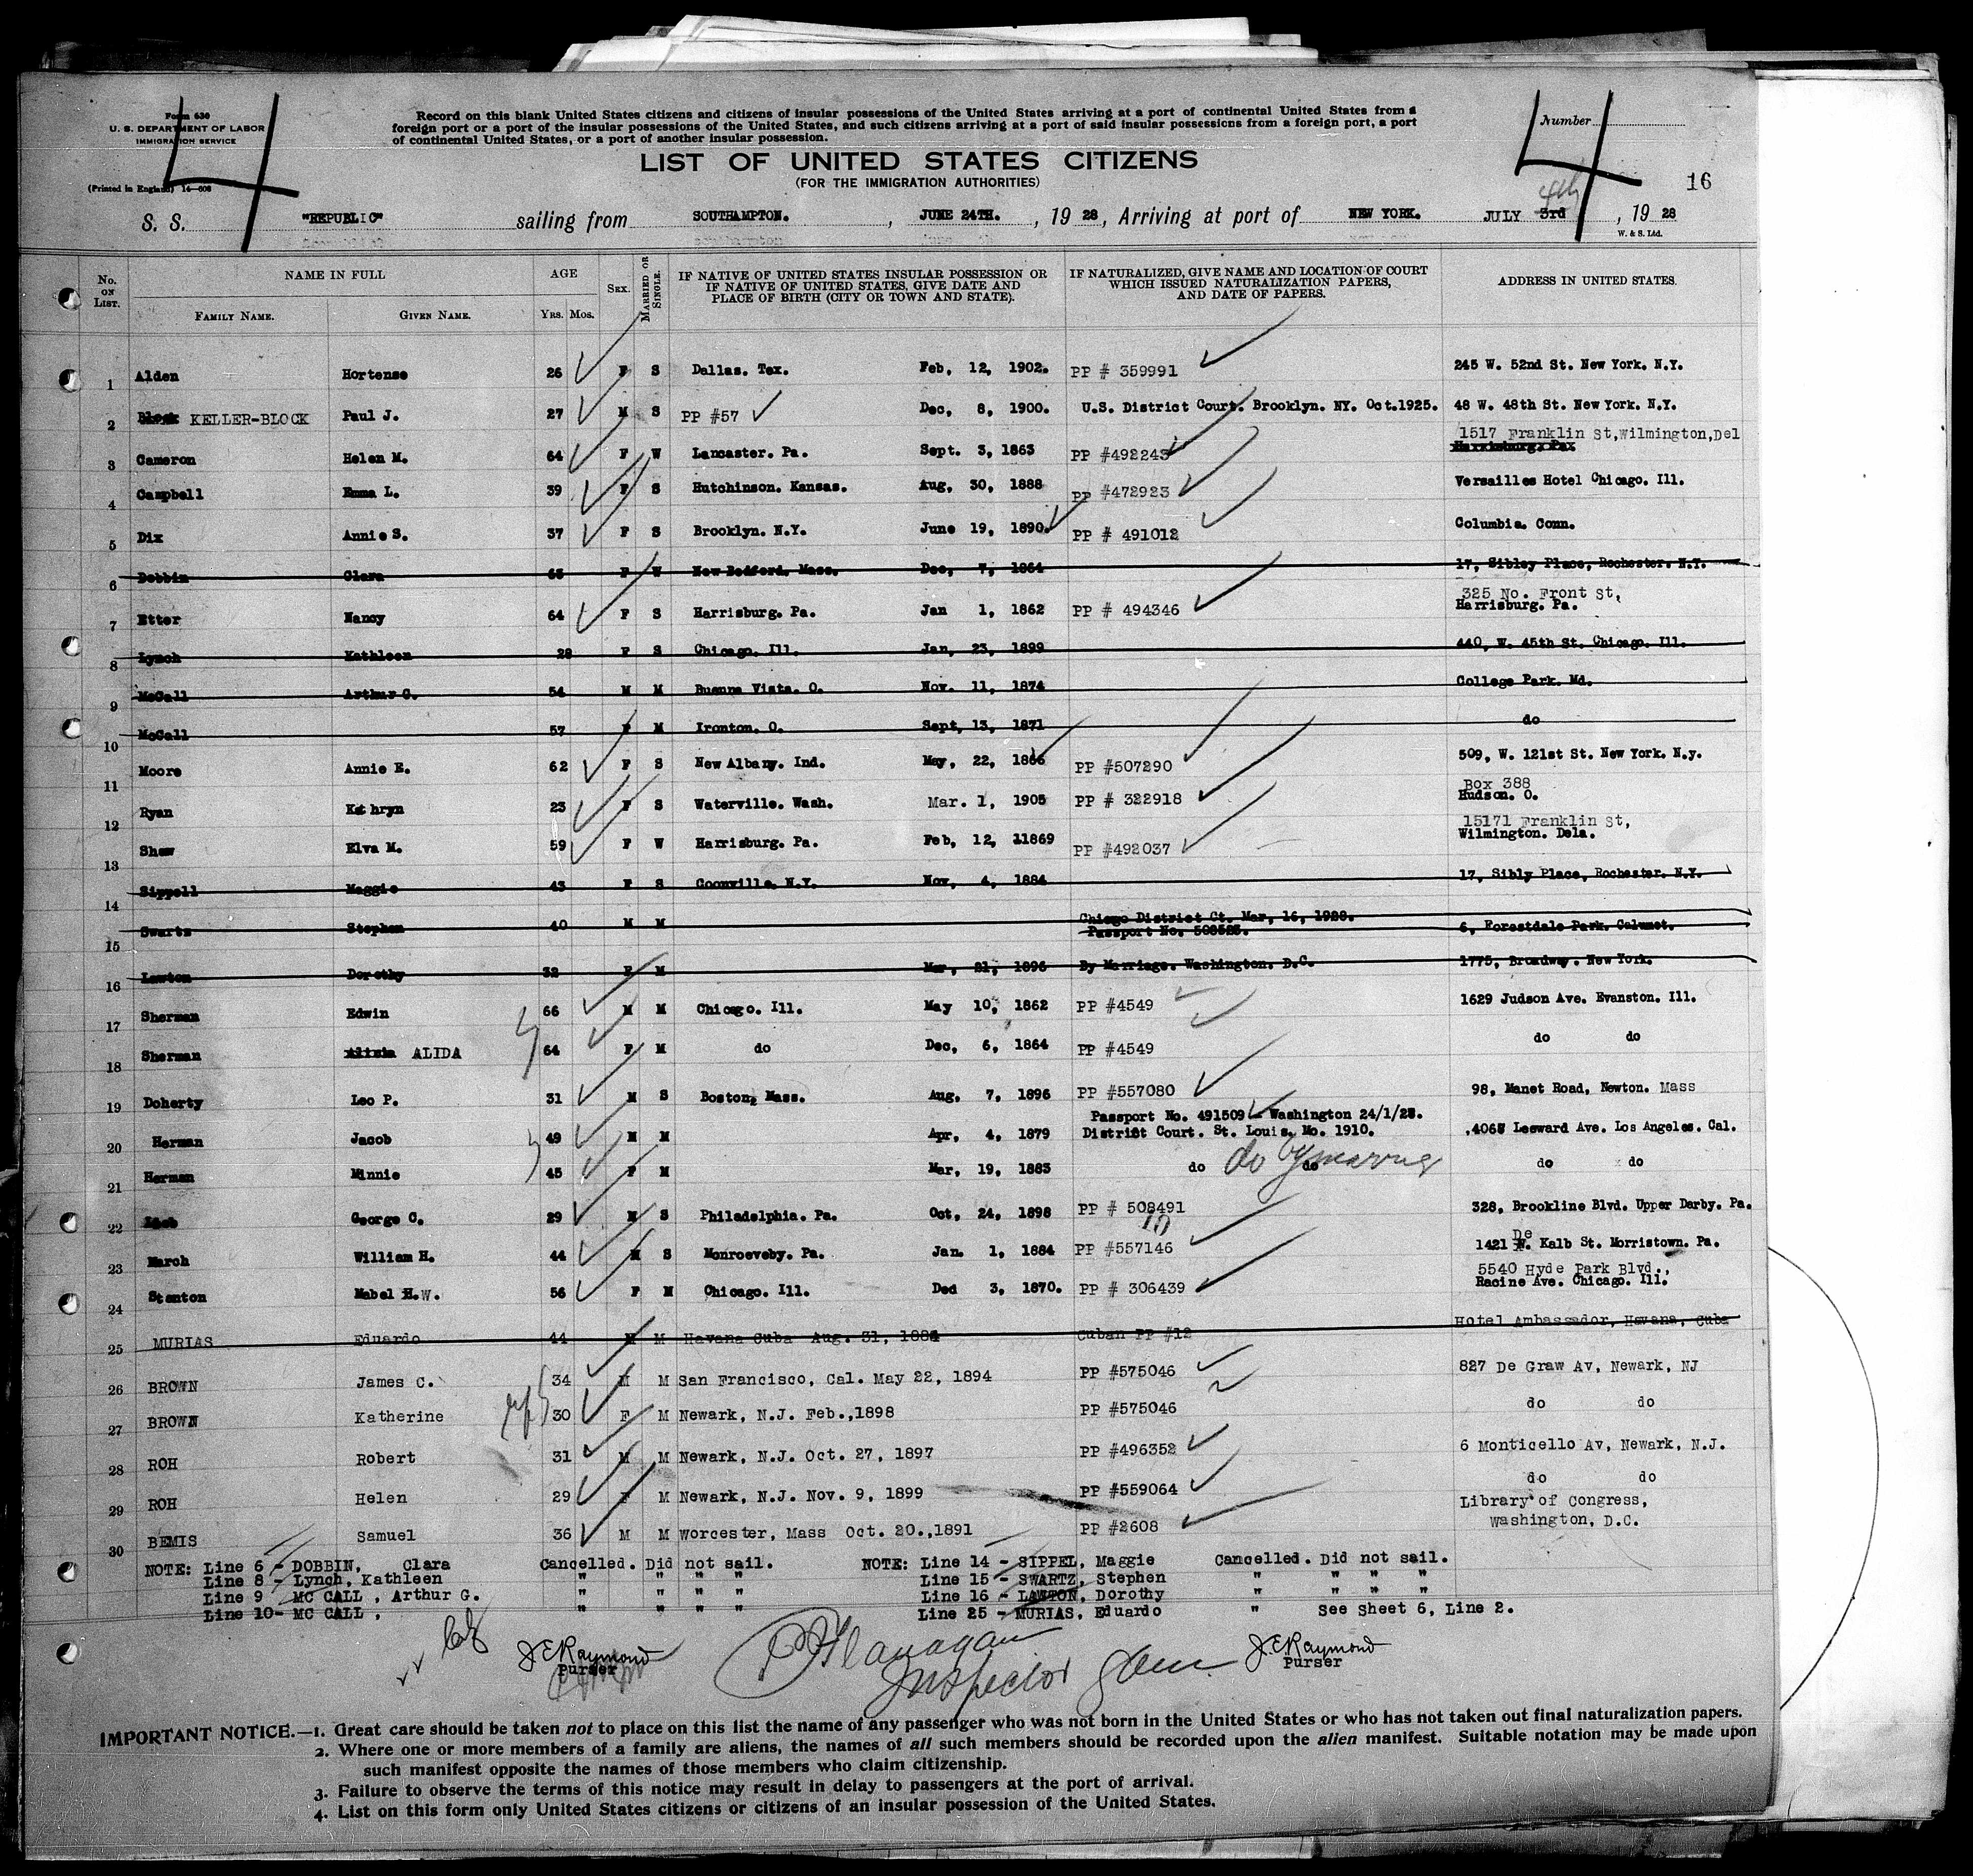 Form 630
U. S. DEPARTMENT OF LABOR
IMMIGRATION SERVICE
(Printed in England) 14—608
4
Record on this blank United States citizens and citizens of insular possessions of the United States arriving at a port of continental United States from a
foreign port or a port of the insular possessions of the United States, and such citizens arriving at a port of said insular possessions from a foreign port, a port
of continental United States, or a port of another insular possession.
Number
4
LIST OF UNITED STATES CITIZENS
(FOR THE IMMIGRATION AUTHORITIES)
16
S. S. "REPUBLIC" sailing from SOUTHAMPTON. , JUNE 24TH. , 19 28 , Arriving at port of NEW YORK. JULY 3rd 4th , 19 28
W. & S. Ltd.
No. ON LIST. NAME IN FULL FAMILY NAME. GIVEN NAME. AGE YRS. MOS. SEX. MARRIED OR SINGLE. IF NATIVE OF UNITED STATES INSULAR POSSESSION OR IF NATIVE OF UNITED STATES, GIVE DATE AND PLACE OF BIRTH (CITY OR TOWN AND STATE). IF NATURALIZED, GIVE NAME AND LOCATION OF COURT WHICH ISSUED NATURALIZATION PAPERS, AND DATE OF PAPERS. ADDRESS IN UNITED STATES.
1 Alden Hortense 26 F S Dallas. Tex. Feb, 12, 1902. PP # 359991 245 W. 52nd St. New York. N.Y.
2 Block KELLER-BLOCK Paul J. 27 M S PP #57 Dec, 8, 1900. U.S. District Court. Brooklyn. NY. Oct.1925. 48 W. 48th St. New York. N.Y.
1517 Franklin St,Wilmington,Del
3 Cameron Helen M. 64 F W Lancaster. Pa. Sept. 3, 1863 PP #492243 Harrisburg. Pa
4 Campbell Emma L. 39 F S Hutchinson. Kansas. Aug, 30, 1888 PP #472923 Versailles Hotel Chicago. Ill.
5 Dix Annie S. 37 F S Brooklyn. N.Y. June 19, 1890. PP # 491012 Columbia. Conn.
6 Dobbin Clara 63 F W New Bedford, Mass. Dec, 7, 1864 17, Sibley Place, Rochester. N.Y.
325 No. Front St,
7 Etter Nancy 64 F S Harrisburg. Pa. Jan 1, 1862 PP # 494346 Harrisburg. Pa.
8 Lynch Kathleen 28 F S Chicago. Ill. Jan, 23, 1899 440, W. 45th St. Chicago. Ill.
9 McCall Arthur G. 54 M M Buenna Vista. O. Nov. 11, 1874 College Park. Md.
10 McCall 57 F M Ironton. O. Sept, 13, 1871 do
11 Moore Annie E. 62 F S New Albany. Ind. May, 22, 1866 PP #507290 509, W. 121st St. New York. N.y.
Box 388
12 Ryan Kathryn 23 F S Waterville. Wash. Mar. 1, 1905 PP # 322918 Hudson. O.
15171 Franklin St,
13 Shaw Elva M. 59 F W Harrisburg. Pa. Feb, 12, 11869 PP #492037 Wilmington. Dela.
14 Sippell Maggie 43 F S Coonville. N.Y. Nov, 4, 1884 17, Sibly Place, Rochester. N.Y.
15 Swartz Stephen 40 M M Chicago District Ct. Mar, 16, 1928. 6, Forestdale Park. Calumet.
Passport No. 508525.
16 Lawton Dorothy 32 F M Mar, 21, 1896 By Marriage. Washington. D.C. 1775, Broadway. New York.
17 Sherman Edwin 66 M M Chicago. Ill. May 10, 1862 PP #4549 1629 Judson Ave. Evanston. Ill.
18 Sherman Alisia ALIDA 64 F M do Dec, 6, 1864 PP #4549 do do
19 Doherty Leo P. 31 M S Boston, Mass. Aug, 7, 1896 PP #557080 98, Manet Road, Newton. Mass
Passport No. 491509 Washington 24/1/28.
20 Herman Jacob 49 M M Apr, 4, 1879 District Court. St. Louis. Mo. 1910. 4065 Leeward Ave. Los Angeles. Cal.
21 Herman Minnie 45 F M Mar, 19, 1883 do do do by marriage do do
22 George C. 29 M S Philadelphia. Pa. Oct, 24, 1898 PP # 508491 328, Brookline Blvd. Upper Darby. Pa.
10
De
23 March William H. 44 M S Monroeveby. Pa. Jan. 1, 1884 PP #557146 1421 N. Kalb St. Morristown. Pa.
5540 Hyde Park Blvd.,
24 Stanton Mabel H.W. 56 F M Chicago. Ill. Ded 3, 1870. PP # 306439 Racine Ave. Chicago. Ill.
25 MURIAS Eduardo 44 M M Havana Cuba Aug. 31, 1884 Cuban PP #12 Hotel Ambassador, Havana, Cuba
26 BROWN James C. 34 M M San Francisco, Cal. May 22, 1894 PP #575046 827 De Graw Av, Newark, NJ
27 BROWN Katherine 30 F M Newark, N.J. Feb.,1898 PP #575046 do do
28 ROH Robert 31 M M Newark, N.J. Oct. 27, 1897 PP #496352 6 Monticello Av, Newark, N.J.
29 ROH Helen 29 F M Newark, N.J. Nov. 9, 1899 PP #559064 do do
Library of Congress,
30 BEMIS Samuel 36 M M Worcester, Mass Oct. 20.,1891 PP #2608 Washington, D.C.
NOTE: Line 6 - DOBBIN, Clara Cancelled. Did not sail. NOTE: Line 14 - SIPPEL, Maggie Cancelled. Did not sail.
Line 8 - Lynch, Kathleen " " " " Line 15 - SWARTZ, Stephen " " " "
Line 9 - MC CALL , Arthur G. " " " " Line 16 - LAWTON, Dorothy " " " "
Line 10- MC CALL , " " " " Line 25 - MURIAS, Eduardo " See Sheet 6, Line 2.
J.E.Raymond Flanagan J.E.Raymond
Purser Inspector Purser
IMPORTANT NOTICE.—1. Great care should be taken not to place on this list the name of any passenger who was not born in the United States or who has not taken out final naturalization papers.
2. Where one or more members of a family are aliens, the names of all such members should be recorded upon the alien manifest. Suitable notation may be made upon
such manifest opposite the names of those members who claim citizenship.
3. Failure to observe the terms of this notice may result in delay to passengers at the port of arrival.
4. List on this form only United States citizens or citizens of an insular possession of the United States.